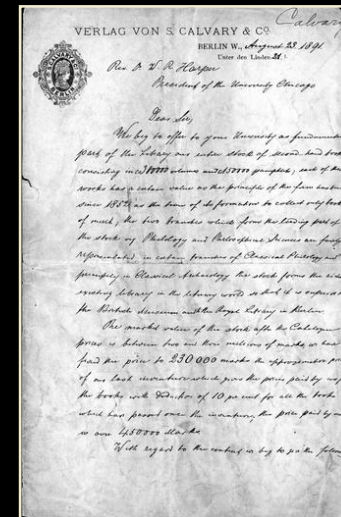 Calvary
VERLAG VON S. CALVARY & CO.
BERLIN W., August 23. 1891
Unter den Linden 21.
CALVARY & CO.
BERLIN
Rev. Dr W. R. Harper
President of the University Chicago
Dear Sir,
We beg to offer to your University as fundamental
part of the Library our entire stock of second hand books
consisting in volumes and 150000 pamphlets, each of the
works has a certain value as the principle of the firm has been
since 1852 as the time of its formation to collect only books
of merit, the two branches which form the leading part of
the stock viz Philology and Philosophical Sciences are
represented, in certain branches of Classical Philology and
principally in Classical Archaeology the stock forms the
existing library in the library world so that it is
the British Museum and the Royal Library in Berlin
The market value of the stock after the Catalogue
prices is between two and three millions of marks, we have
fixed the price to 230000 marks the approximative
of our last inventory which gives the price paid by us
the books with deduction of 10 per cent for all the books
which has passed once the inventory, the price paid by us
is over 450000 Marks.
With regard to the we beg to put the